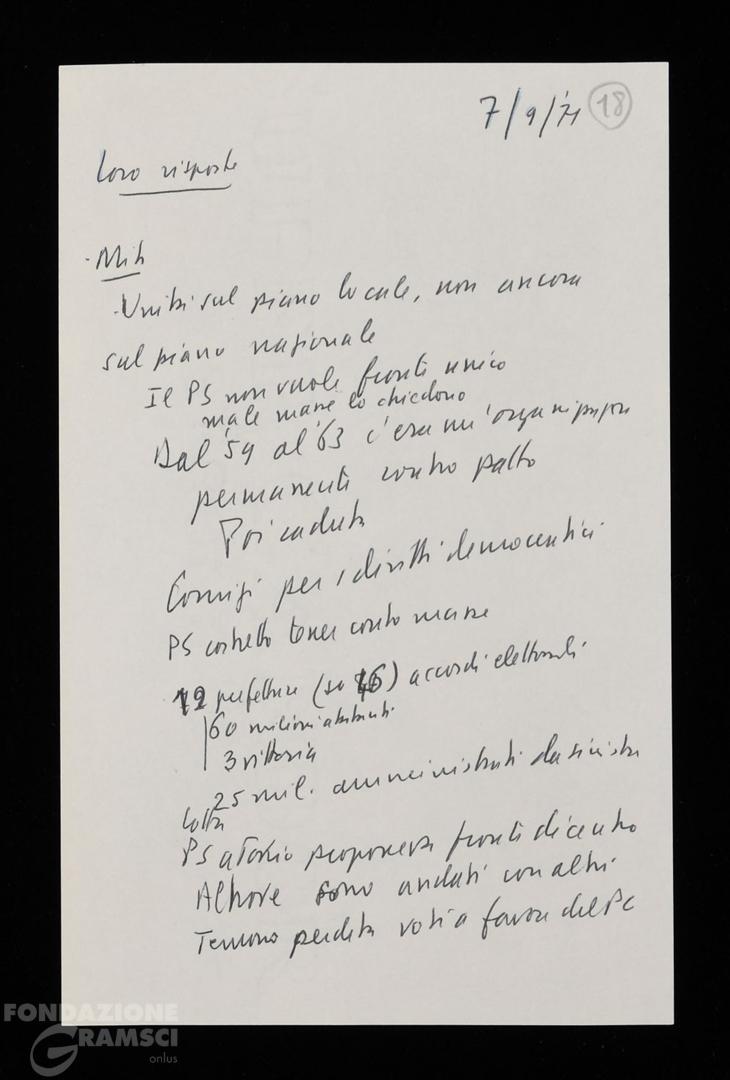 7/9/'71
18
Loro risposte
- Miti
- Unità sul piano locale, non ancora
sul piano nazionale
Il PS non vuole fronte unico
ma le masse lo chiedono
Dal '59 al '63 c'era un'organizzazione
permanente contro patto
Poi caduta
Comizi per i diritti democratici
PS costretto tener conto masse
12 prefetture (su 46) accordi elettorali
60 milioni abitanti
3 vittoria
25 mil. amministrati da sinistra
Lotta
PS a Tokio proponeva fronte di centro
Altrove sono andati con altri
Temono perdita voti a favore del PC
FONDAZIONE
GRAMSCI
onlus